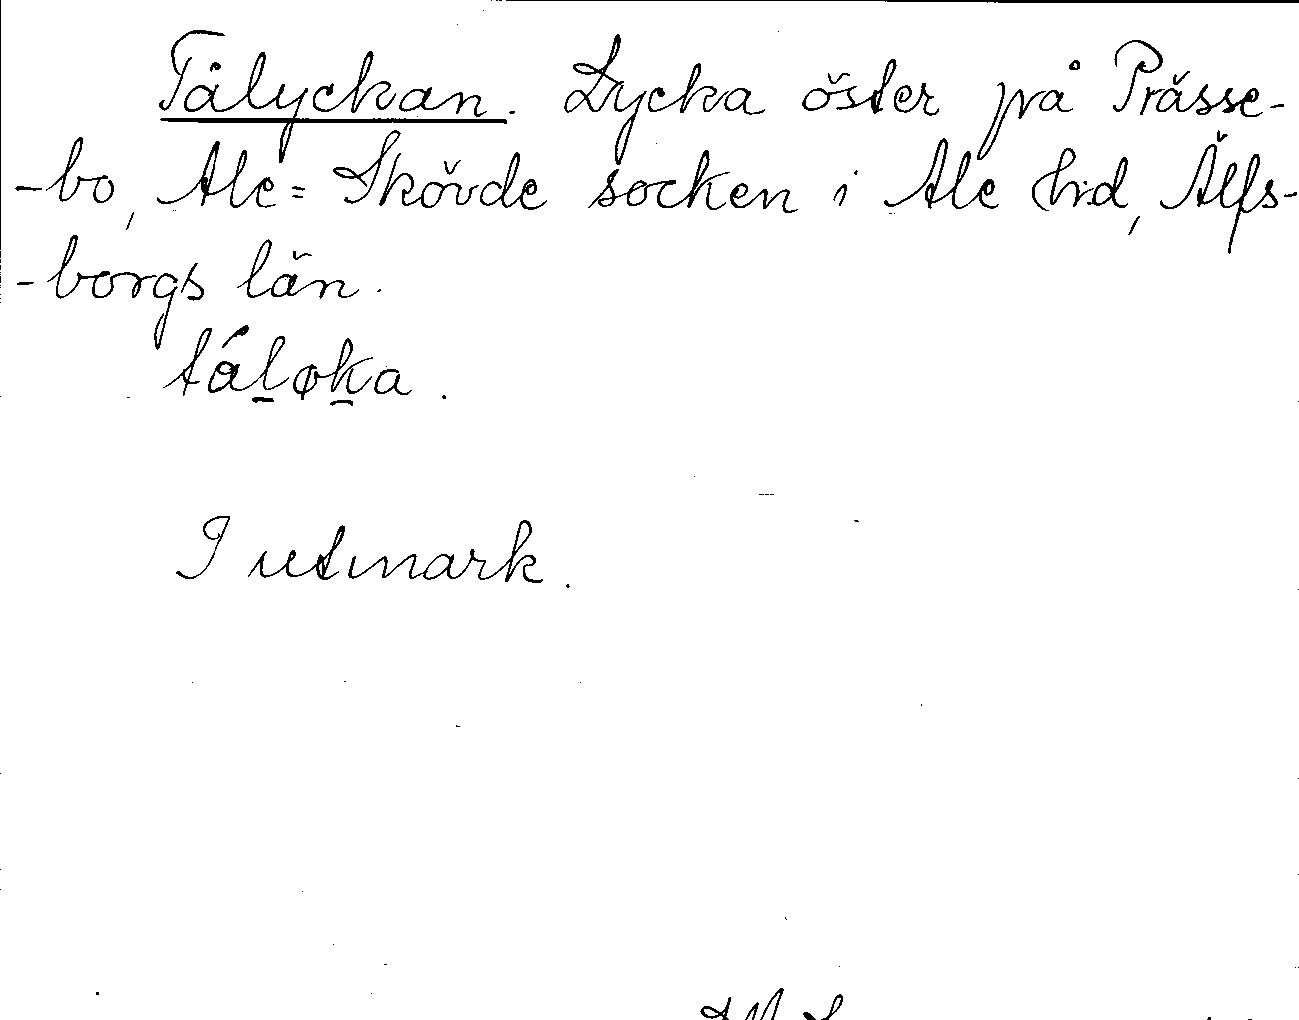 Tålyckan. Lycka öster på Prässe-
-bo, Ale=Skövde socken i Ale hd, Älfs-
-borgs län.
táløka.
I utmark.